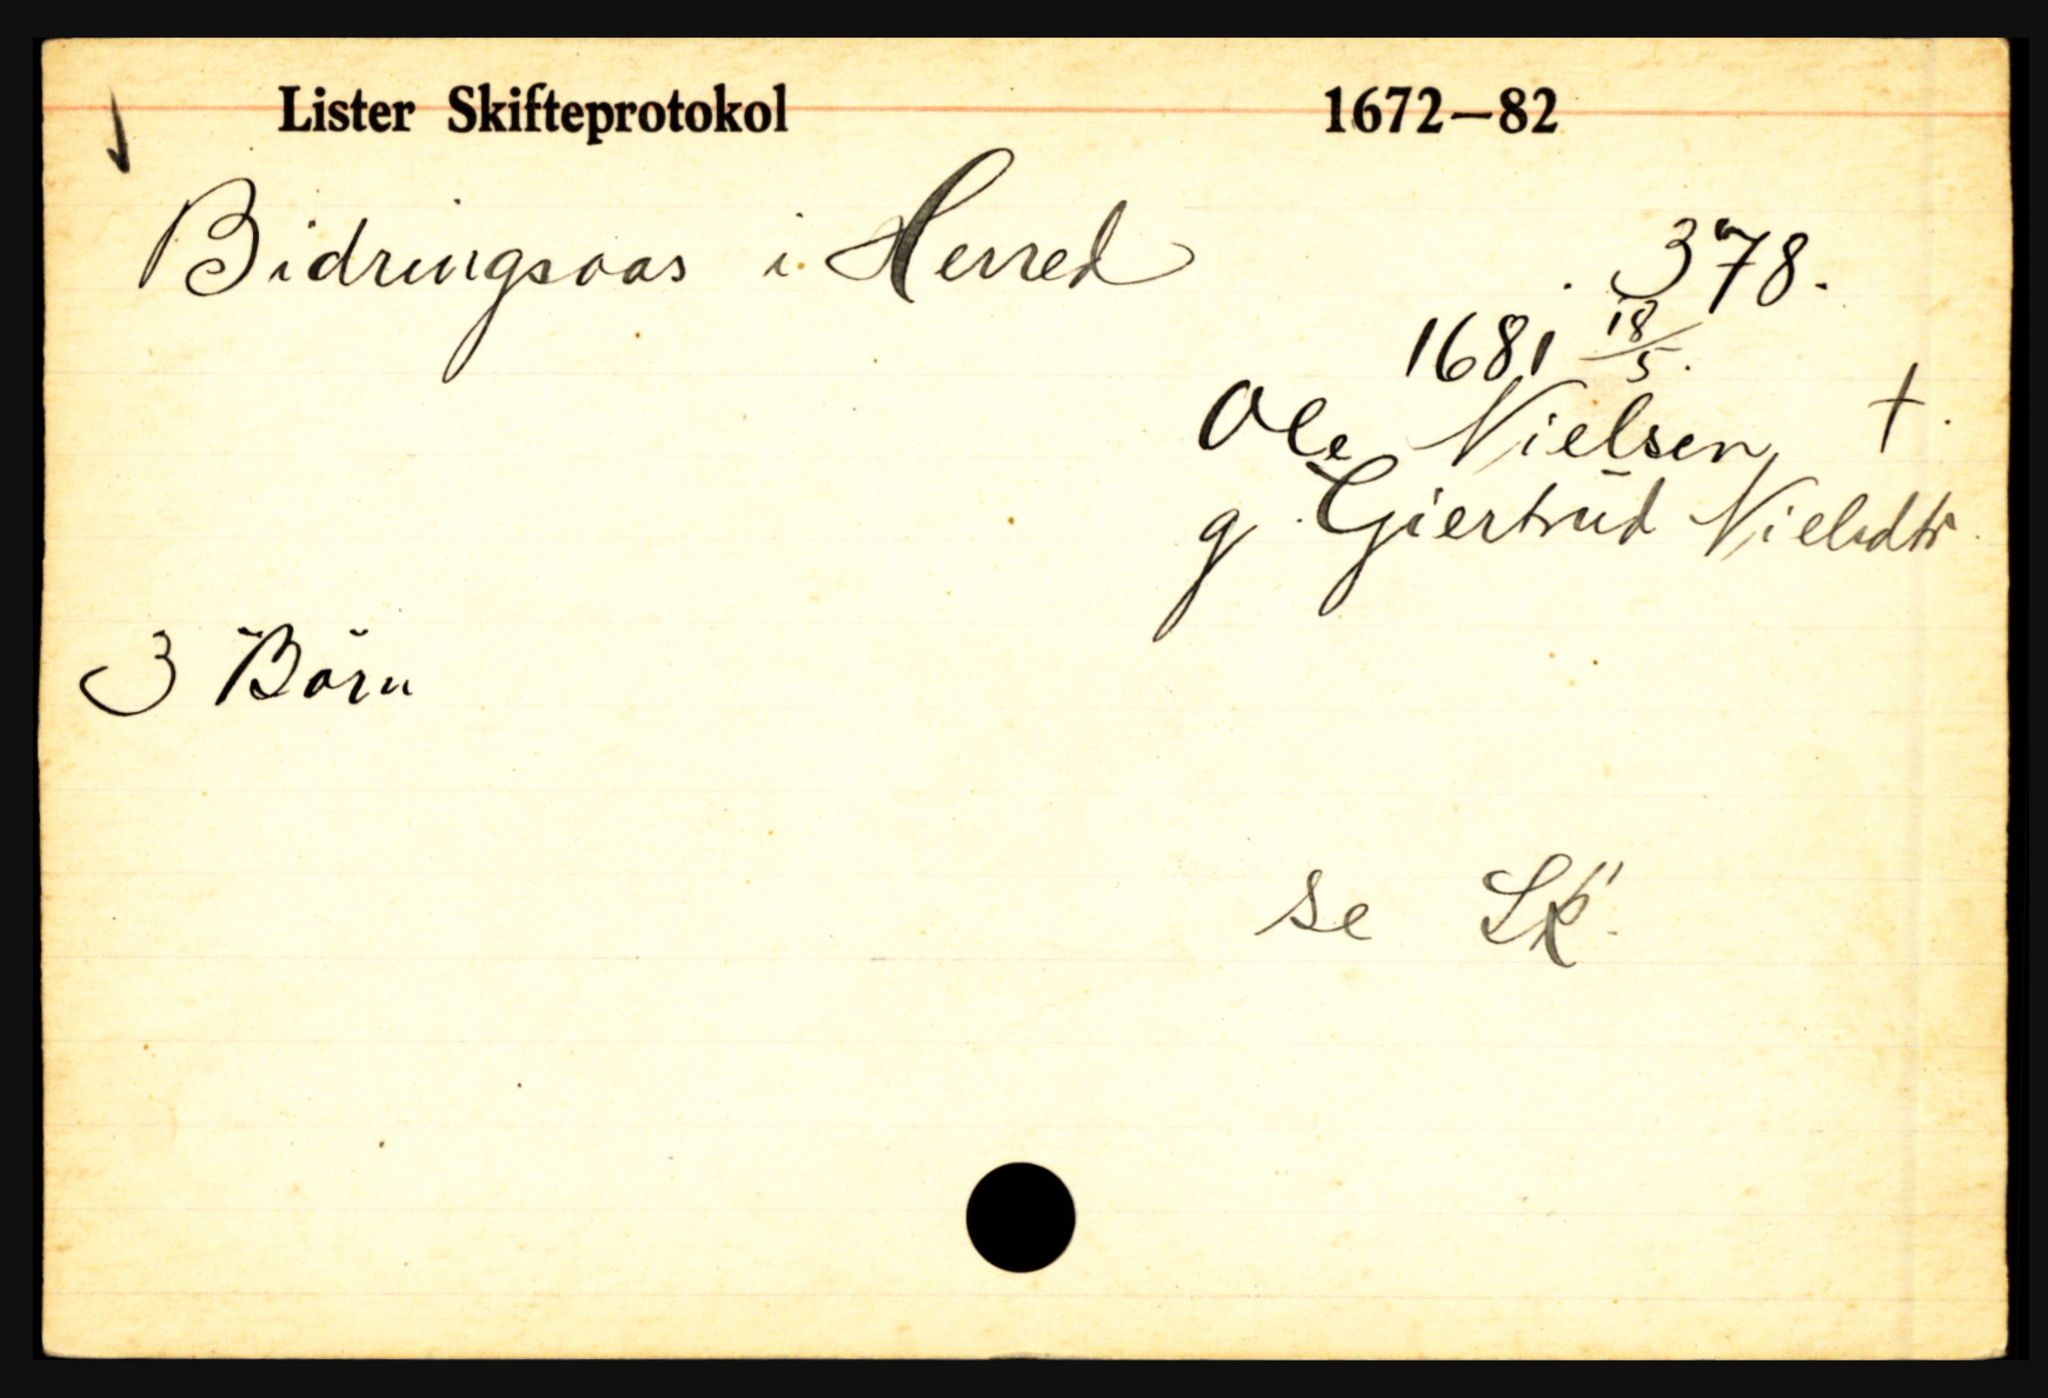 Lister Skifteprotokol 1672—82
Bidringsaas i Herred
378.
1681 18/5.
Ole Nielsen †.
g. Giertrud Nielsdtr.
3 Börn
se Sk.